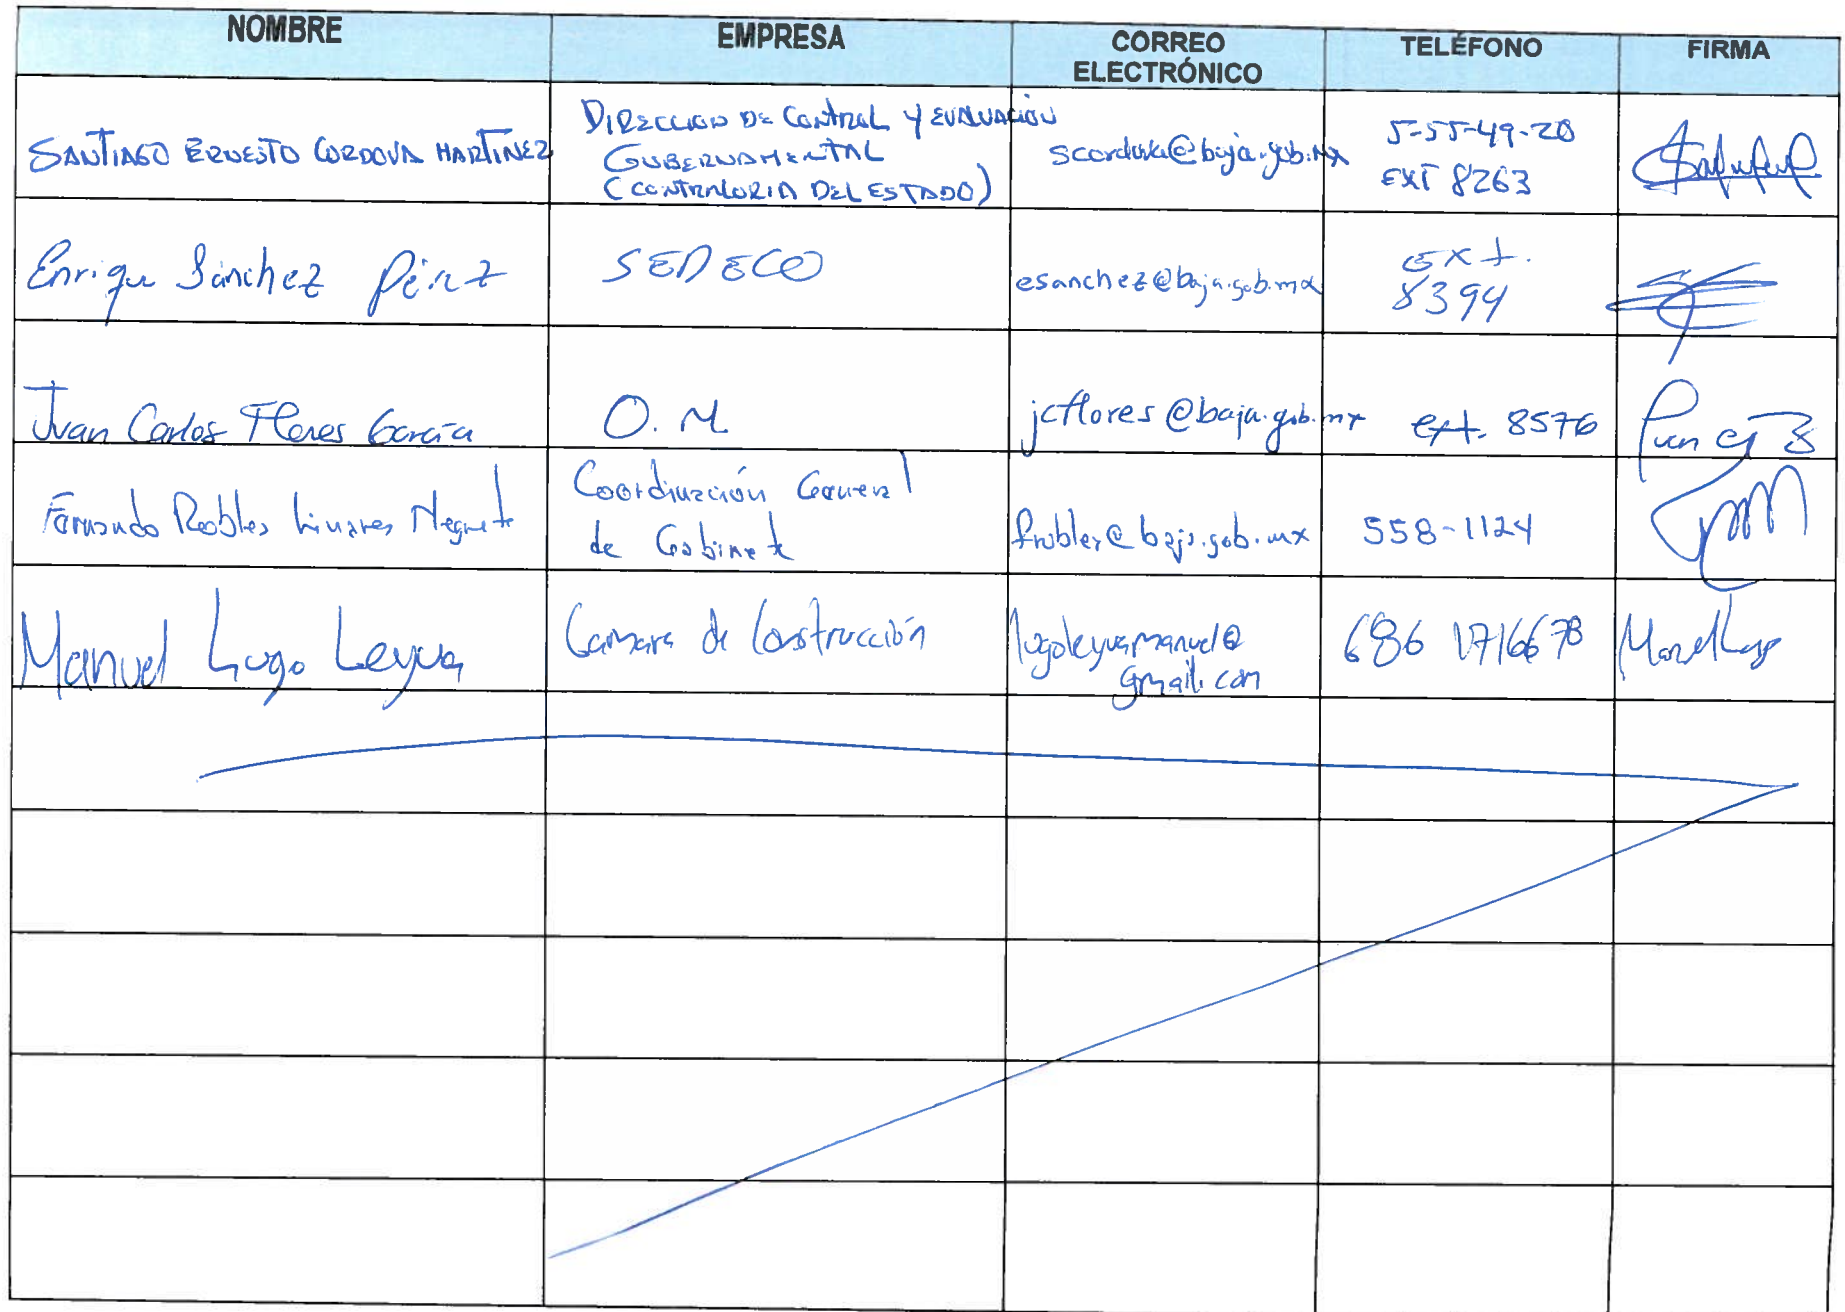 NOMBRE
EMPRESA
CORREO
ELECTRÓNICO
TELÉFONO
FIRMA
SANTIAGO ERNESTO CORDOVA MARTINEZ
DIRECCION DE CONTROL Y EVALUACIÓN
GUBERNAMENTAL
(CONTRALORIA DEL ESTADO)
scordova@baja.gob.mx
5-55-49-20
EXT 8263
Enrique Sánchez Pérez
SEDECO
esanchez@baja.gob.mx
ext.
8394
Juan Carlos Flores García
O. M.
jcflores@baja.gob.mx
ext. 8576
Fernando Robles Linares Negrete
Coordinación General
de Gabinete
frobles@baja.gob.mx
558-1124
Manuel Lugo Leyva
Camara de Construcción
lugoleyvamanuel@
gmail.com
686 1716678
Manuel Lugo